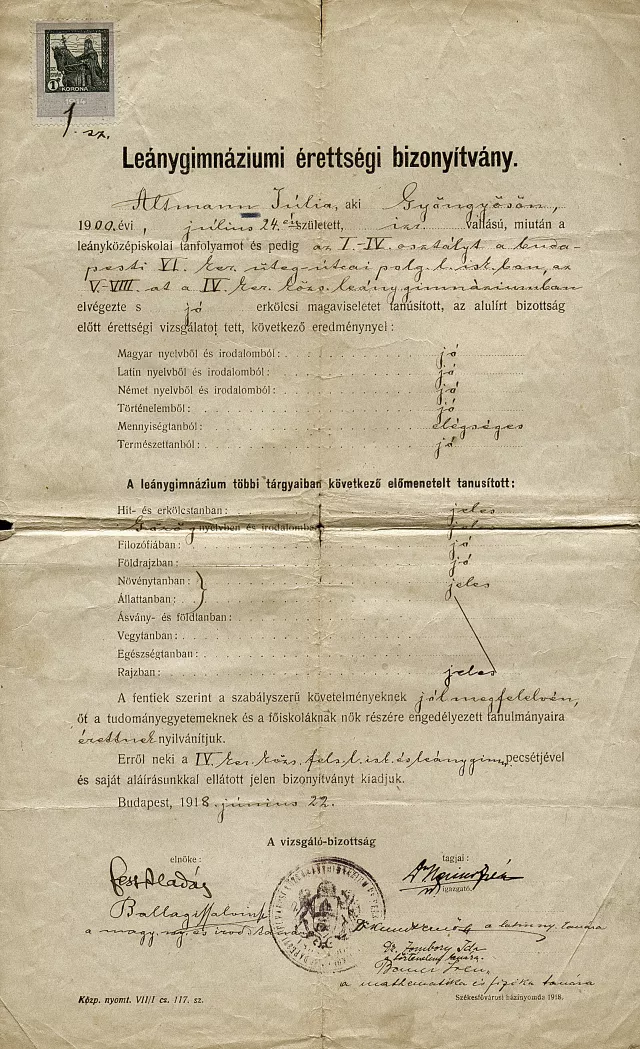 1 KORONA
1. sz.
Leánygimnáziumi érettségi bizonyítvány.
Altmann Júlia, aki Gyöngyösön,
1900. évi, július 24.-én született, izr. vallású, miután a
leányközépiskolai tanfolyamot és pedig az I.-IV. osztályt a buda-
pesti VI. ker. ... utcai polg. l. isk. ban, az
V-VIII. at a IV. ker. közs. leánygimnáziumban
elvégezte s jó erkölcsi magaviseletet tanúsított, az alulírt bizottság
előtt érettségi vizsgálatot tett, következő eredménynyel:
Magyar nyelvből és irodalomból: jó
Latin nyelvből és irodalomból: jó
Német nyelvből és irodalomból: jó
Történelemből: jó
Mennyiségtanból: elégséges
Természettanból: jó
A leánygimnázium többi tárgyaiban következő előmenetelt tanusított:
Hit- és erkölcstanban: jeles
Görög nyelvben és irodalomban jeles
Filozófiában: jó
Földrajzban: jó
Növénytanban: jeles
Állattanban:
Ásvány- és földtanban:
Vegytanban:
Egészségtanban:
Rajzban: jeles
A fentiek szerint a szabályszerű követelményeknek jól megfelelvén,
őt a tudományegyetemeknek és a főiskoláknak nők részére engedélyezett tanulmányaira
érettnek nyilvánítjuk.
Erről neki a IV. ker. közs. fels. l. isk. és leánygimn. pecsétjével
és saját aláírásunkkal ellátott jelen bizonyítványt kiadjuk.
Budapest, 1918. június 22.
A vizsgáló-bizottság
elnöke: tagjai:
Fest Aladár
igazgató.
a magy. ny. és irod. tanára
a latin ny. tanára
Dr. Zombory Ida
a történelem tanára.
a mathematika és fizika tanára
Közp. nyomt. VII/I cs. 117. sz. Székesfővárosi házinyomda 1918.